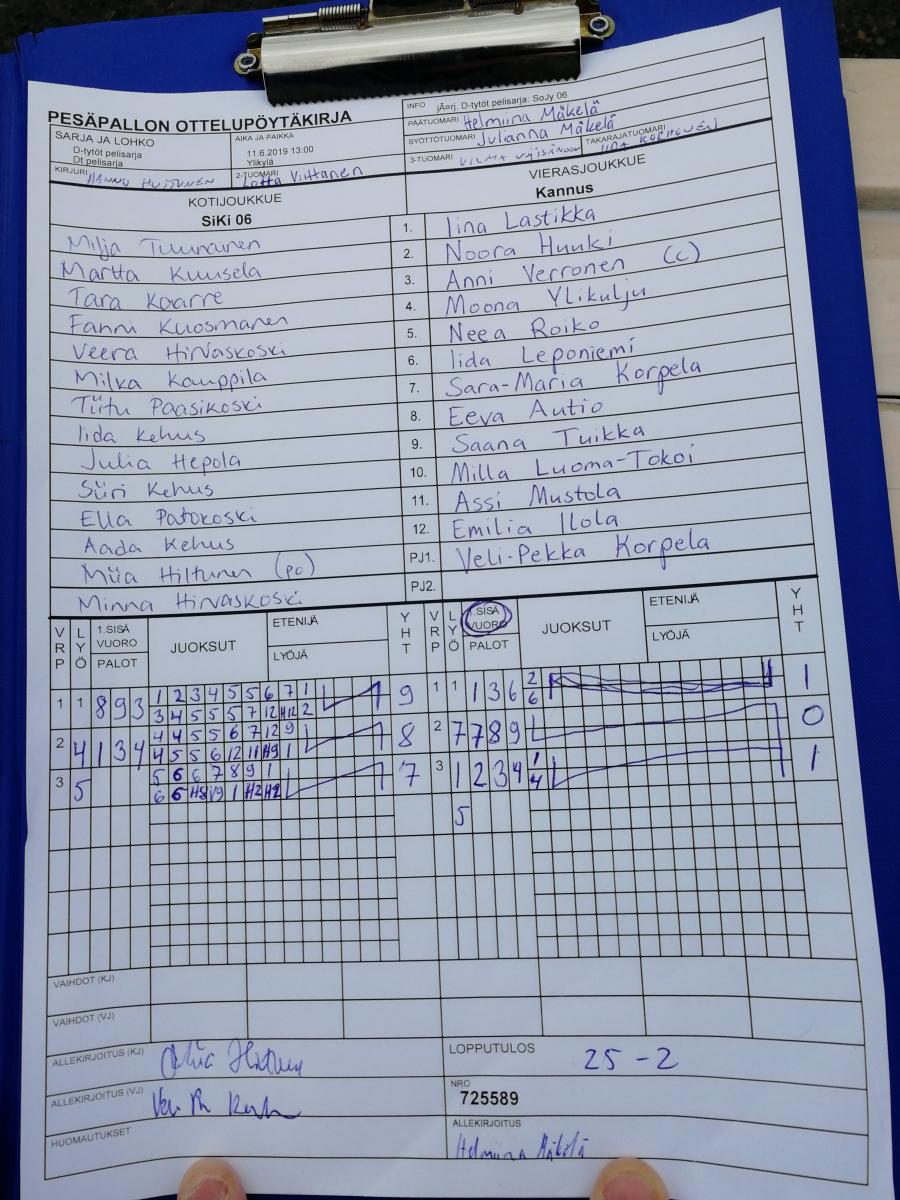 PESÄPALLON OTTELUPÖYTÄKIRJA
INFO jÄorj. D-tytöt pelisarja: SoJy 06
PÄÄTUOMARI Helmiina Mäkelä
SYÖTTÖTUOMARI Julianna Mäkelä
3-TUOMARI VILMA VÄISÄNEN TAKARAJATUOMARI
SARJA JA LOHKO
D-tytöt pelisarja
Dt pelisarja
AIKA JA PAIKKA
11.6.2019 13:00
Ylikylä
KIRJURI HANNU HUTTUNEN 2-TUOMARI Lotta Viittanen
KOTIJOUKKUE
SiKi 06
VIERASJOUKKUE
Kannus
Milja Tuunainen 1. Iina Lastikka
Martta Kuusela 2. Noora Huuki
Tara Kaarre 3. Anni Verronen (c)
Fanni Kuosmanen 4. Moona Ylikulju
Veera Hirvaskoski 5. Neea Roiko
Milka Kauppila 6. Iida Leponiemi
Tiitu Paasikoski 7. Sara-Maria Korpela
Iida Kehus 8. Eeva Autio
Julia Hepola 9. Saana Tuikka
Siiri Kehus 10. Milla Luoma-Tokoi
Ella Patokoski 11. Assi Mustola
Aada Kehus 12. Emilia Ilola
Miia Hiltunen (pj) PJ1. Veli-Pekka Korpela
Minna Hirvaskoski PJ2.
VRP LYÖ 1.SISÄ VUORO PALOT JUOKSUT ETENIJÄ LYÖJÄ YHT VRP LYÖ 1.SISÄ VUORO PALOT JUOKSUT ETENIJÄ LYÖJÄ YHT
1 1 8 9 3 1 2 3 4 5 5 6 7 1 9 1 1 1 3 6 2 1
3 4 5 5 5 7 12 H12 2 6
2 4 1 3 4 4 4 5 5 6 7 12 9 8 2 7 7 8 9 0
4 5 5 6 12 11 H9 1
3 5 5 6 6 7 8 9 1 7 3 1 2 3 4 1 1
6 6 H8 V9 1 H2 H2 4
5
VAIHDOT (KJ)
VAIHDOT (VJ)
ALLEKIRJOITUS (KJ)
LOPPUTULOS 25-2
ALLEKIRJOITUS (VJ)
NRO
725589
HUOMAUTUKSET
ALLEKIRJOITUS
Helmiina Mäkelä